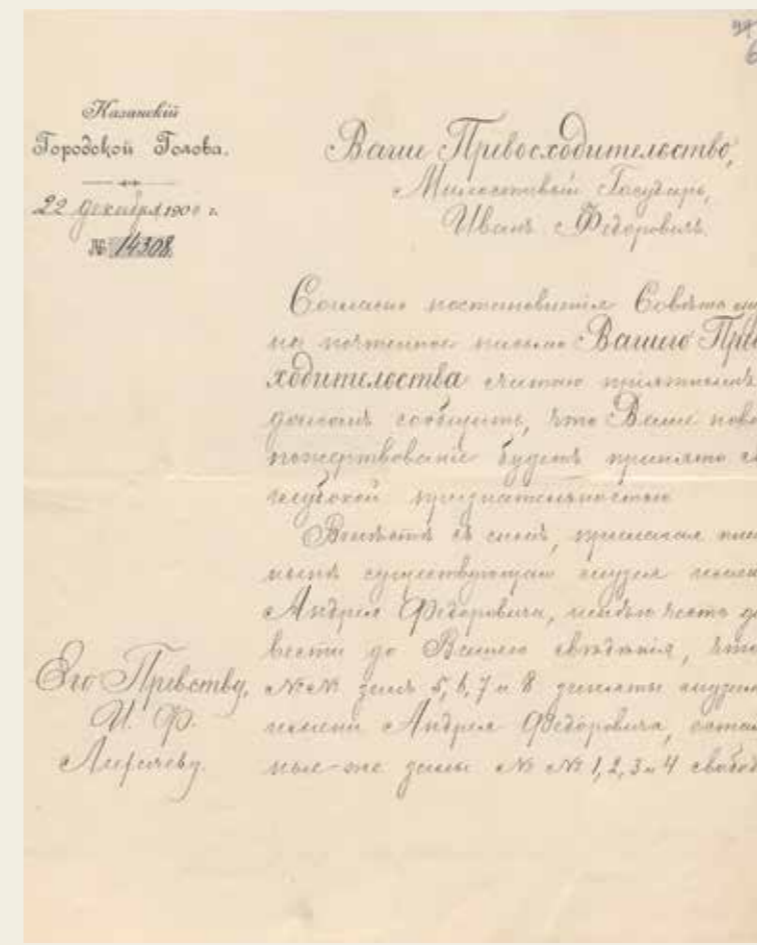 Казанскій
Городской Голова.
22 декабря 1900 г.
№ 14308
Ваше Превосходительство,
Милостивый Государь,
Иванъ Федоровичъ.
Согласно постановленія Совѣта му
на почтенное письмо Вашего Прево
ходительства считаю пріятнымъ
долгомъ сообщить, что Ваше ново
пожертвованіе будетъ принято съ
глубокой признательностью
Вмѣстѣ съ симъ, прилагая план
нынѣ существующаго музея имени
Андрея Федоровича, имѣю честь до
вести до Вашего свѣдѣнія, что
№№ залъ 5, 6, 7 и 8 заняты музеемъ
имени Андрея Федоровича, осталь
ные-же залы №№ 1, 2, 3 и 4 свобод
Его Превству,
И. Ф.
Лихачеву.